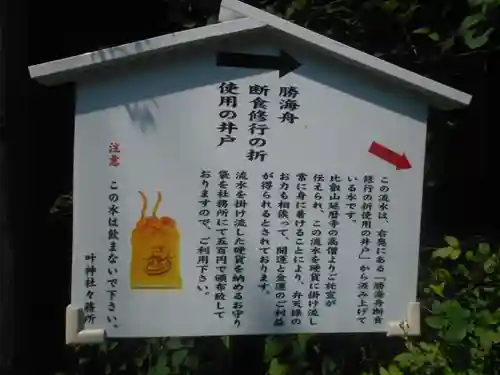 勝海舟
断食修行の折
使用の井戸
この流水は、右奥にある「勝海舟断食
修行の折使用の井戸」から汲み上げて
いる水です。
比叡山延暦寺の高僧よりご託宣が
伝えられ、この流水を硬貨に掛け流し
常に身に着けることにより、弁天様の
お力も相俟って、開運と金運のご利益
が得られるとされております。
流水を掛け流した硬貨を納めるお守り
袋を社務所にて五百円で頒布致して
おりますので、ご利用下さい。
注意
この水は飲まないで下さい。
叶神社々務所